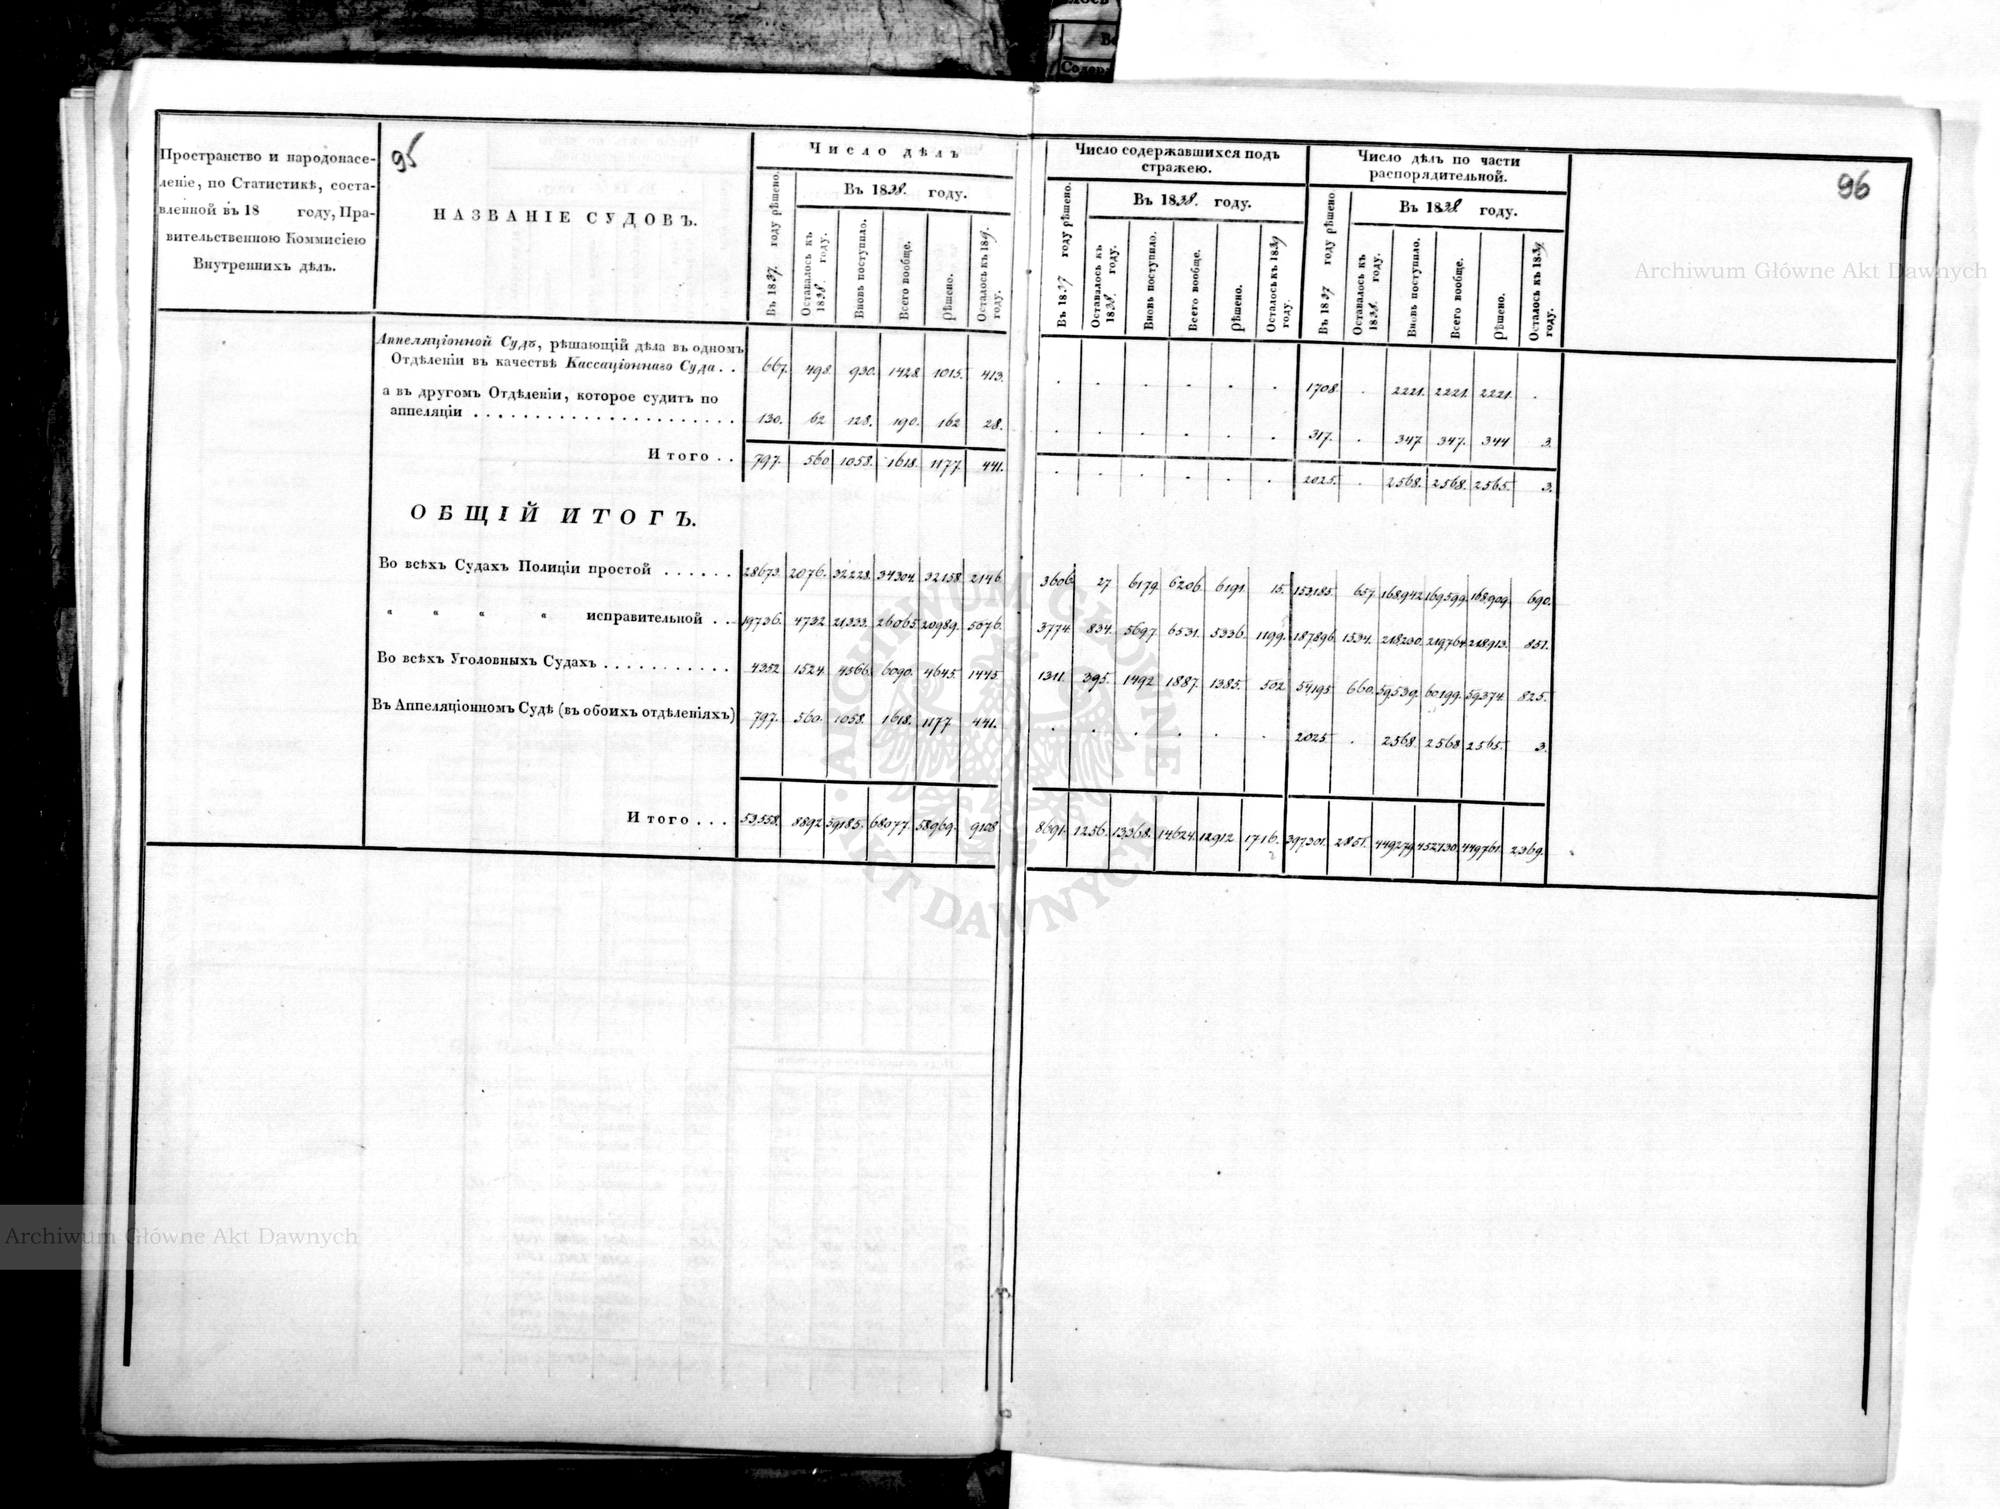 95
96
Пространство и народонасе-
леніе, по Статистикѣ, соста-
вленной въ 18 году, Пра-
вительственною Коммисіею
Внутреннихъ дѣлъ.
НАЗВАНІЕ СУДОВЪ.
Число дѣлъ
Въ 1837. году рѣшено.
Въ 1838. году.
Оставалось къ 1838. году.
Вновь поступило.
Всего вообще.
Рѣшено.
Осталось къ 1839. году.
Число содержавшихся подъ
стражею.
Въ 1837 году рѣшено.
Въ 1838. году.
Оставалось къ 1838. году.
Вновь поступило.
Всего вообще.
Рѣшено.
Осталось къ 1839 году.
Число дѣлъ по части
распорядительной.
Въ 1837 году рѣшено
Въ 1838 году.
Оставалось къ 1838. году.
Вновь поступило.
Всего вообще.
Рѣшено.
Осталось къ 1839 году.
Аппеляціонной Судъ, рѣшающій дѣла въ одномъ
Отдѣленіи въ качествѣ Кассаціоннаго Суда . . 667. 498. 930. 1428. 1015. 413. . . . . . . 1708. . 2221. 2221. 2221. .
а въ другомъ Отдѣленіи, которое судитъ по
аппеляціи . . . . . 130. 62 128. 190. 162 28. . . . . . . 317. . 347 347. 344 3.
Итого . . 797. 560 1058. 1618. 1177. 441. . . . . . . 2025. . 2568. 2568. 2565. 3.
ОБЩІЙ ИТОГЪ.
Во всѣхъ Судахъ Полиціи простой . . . . . . 28673. 2076. 32228. 34304. 32158. 2146. 3606. 27 6179. 6206. 6191. 15. 153,185. 657. 168,942. 169,599. 168,909. 690.
“ “ “ “ исправительной . . 19736. 4732 21333. 26065. 20989. 5076. 3774. 834. 5697. 6531. 5336. 1199. 187,896. 1534. 218,230. 219,764. 218,913. 851.
Во всѣхъ Уголовныхъ Судахъ . . . . . 4352 1524. 4566. 6090. 4645. 1445. 1311. 395. 1492 1887. 1385. 502 54195 660. 59,539. 60199. 59,374. 825.
Въ Аппеляціонномъ Судѣ (въ обоихъ отдѣленіяхъ) 797. 560. 1058. 1618. 1177 441. . . . . . . 2025 . 2568. 2568 2565. 3.
Итого . . . 53,558. 8892 59185. 68077. 58969. 9108 8691. 1256. 13,368. 14624. 12912 1716. 397,301. 2851. 449279. 452130. 449761. 2369.
Archiwum Główne Akt Dawnych
ARCHIWUM GŁÓWNE
AKT DAWNYCH
Archiwum Główne Akt Dawnych